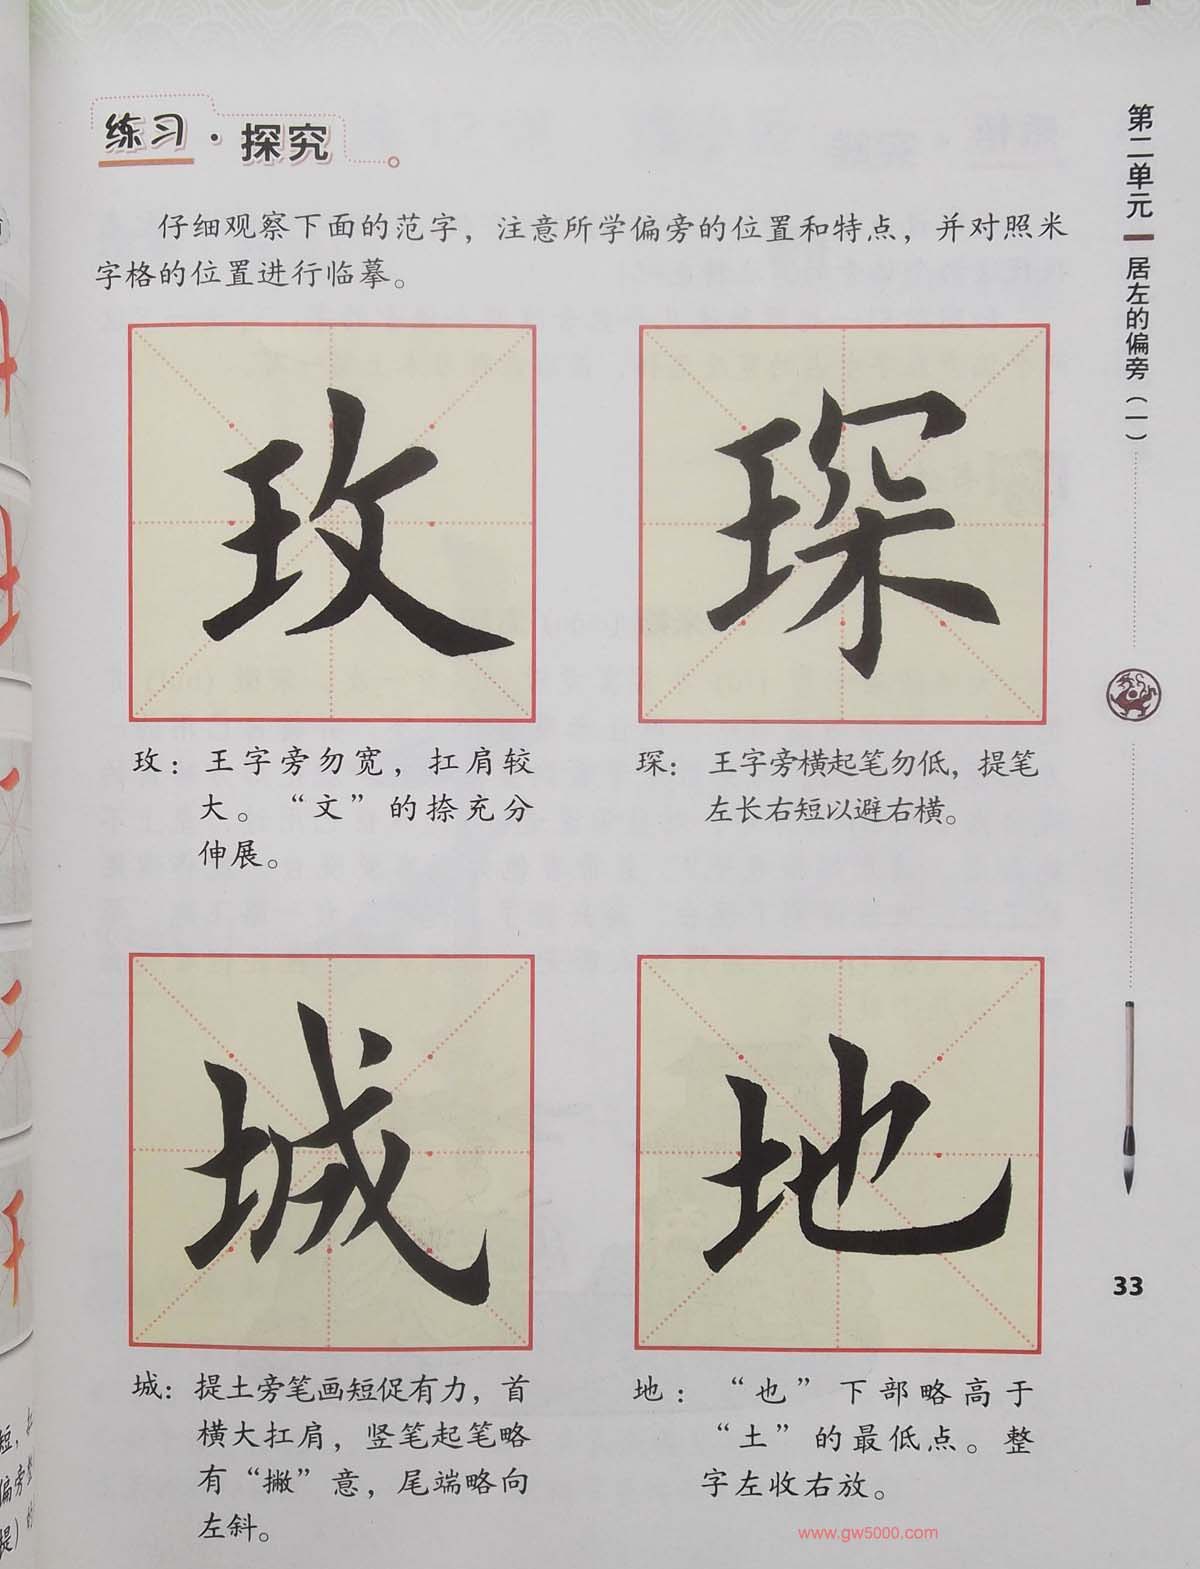 练习·探究
仔细观察下面的范字，注意所学偏旁的位置和特点，并对照米
字格的位置进行临摹。
玫
琛
玫：王字旁勿宽，扛肩较
大。“文”的捺充分
伸展。
琛：王字旁横起笔勿低，提笔
左长右短以避右横。
城
地
城：提土旁笔画短促有力，首
横大扛肩，竖笔起笔略
有“撇”意，尾端略向
左斜。
地：“也”下部略高于
“土”的最低点。整
字左收右放。
第二单元 居左的偏旁（一）
33
www.gw5000.com
短，
偏旁
提）